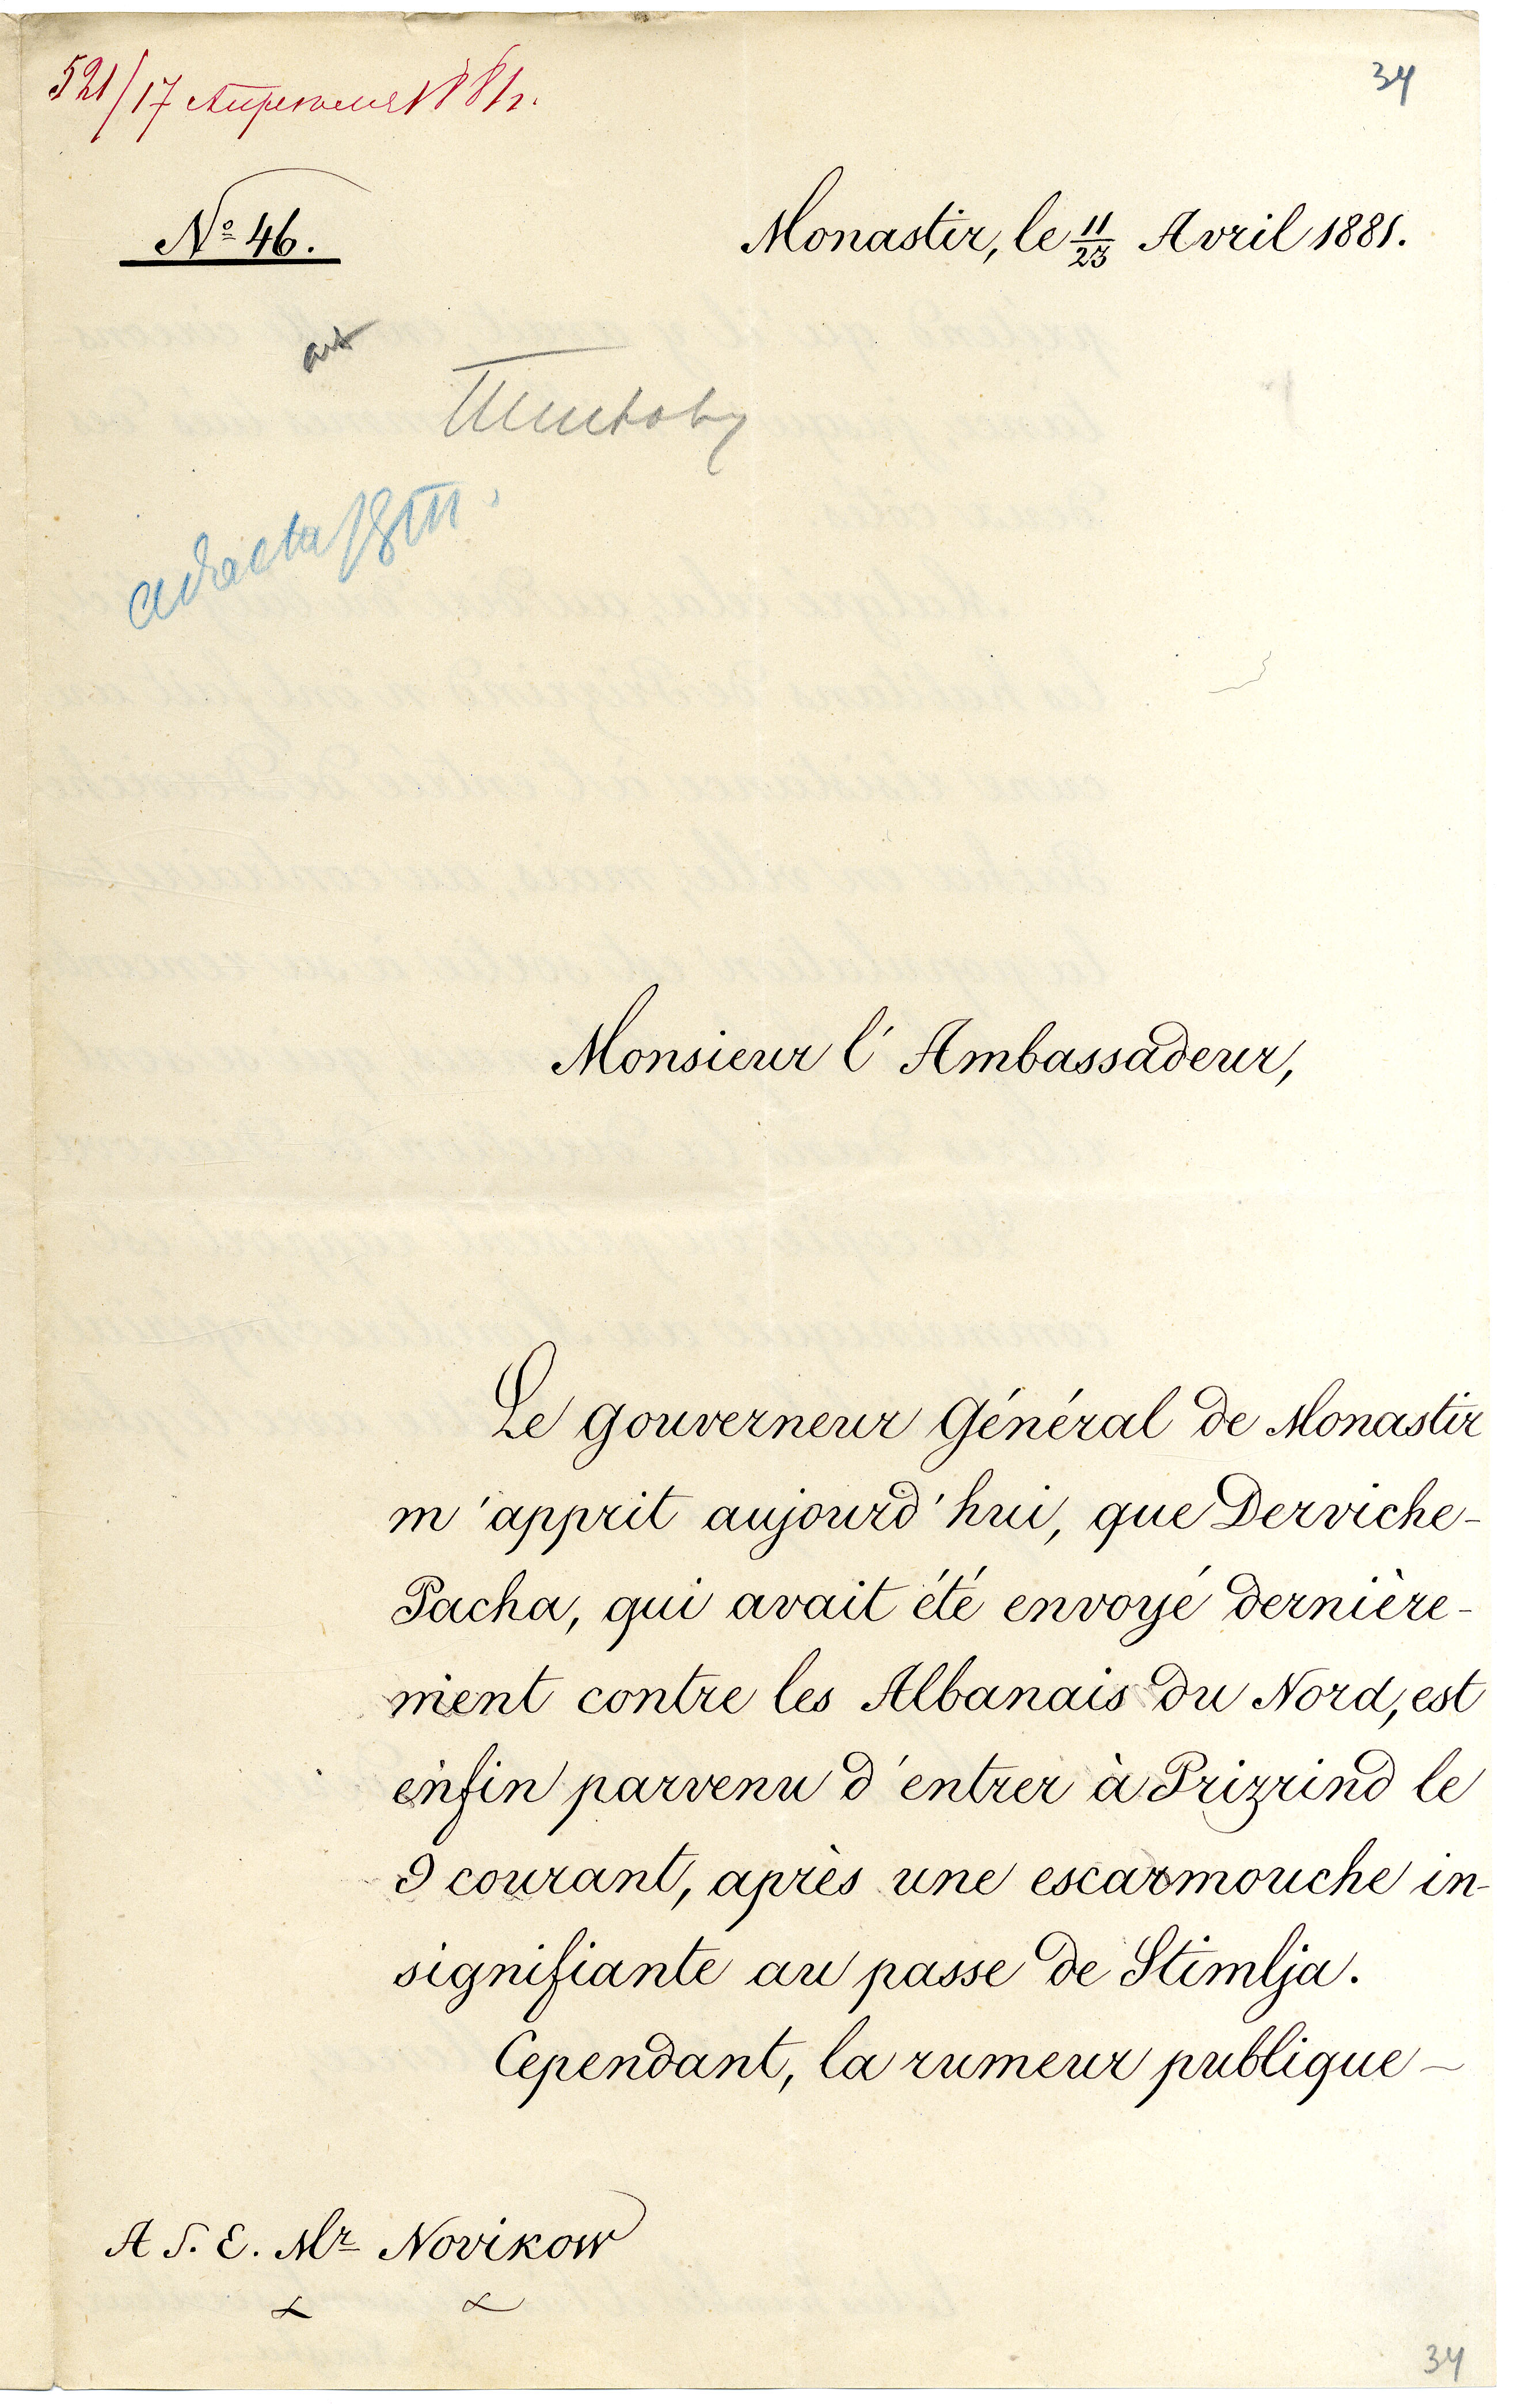 521/17 Апреля 1881 г.
34
№ 46.
Monastir, le 11/23 Avril 1881.
ad acta
Monsieur l'Ambassadeur,
Le Gouverneur Général de Monastir
m'apprit aujourd'hui, que Derviche-
Pacha, qui avait été envoyé dernière-
ment contre les Albanais du Nord, est
enfin parvenu d'entrer à Prizrind le
9 courant, après une escarmouche in-
signifiante au passe de Stimlja.
Cependant, la rumeur publique
A S. E. Mr Novikow
34